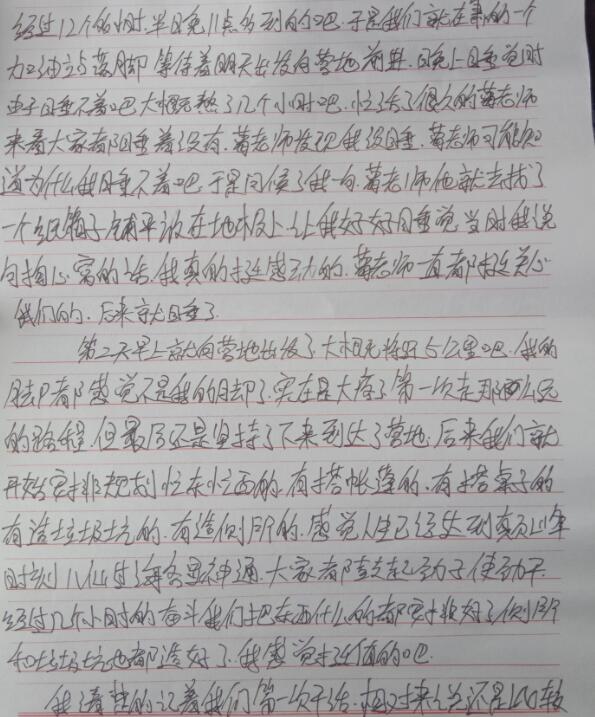 经过12个的小时.半日晚11点多到的个吧.于是我们就在集的一个
加油站落脚等待着明天出发向营地前进.晚上睡觉时
由于睡不着吧大概熬了几个小时吧.忙活了很久的葛老师
来看大家都睡着没有.葛老师发现我没睡.葛老师可能知
道为什么我睡不着吧.于是问候了我一句.葛老师他就去找了
一个纸箱子铺平放在地板上.让我好好睡觉.当时我说
句掏心窝的话.我真的挺感动的.葛老师一直都挺关心
我们的.后来就睡了
第二天早上就向营地出发了.大概走将近5公里吧.我的
脚都感觉不是我的脚了.实在是太疼了第一次走那么远
的路程.但最后还是坚持了下来到达了营地.后来我们就
开始安排规划忙东忙西的.有搭帐篷的.有搭桌子的
有造垃圾坑的.有造侧所的.感觉人生已经达到巅峰
时刻八仙过海各显神通.大家都鼓起劲子使劲干
经过几个小时的奋斗我们把东西什么的都安排好了侧所
和垃圾坑也都造好了.我感觉挺值的吧
我清楚的记着我们第一次干活.相对来说还是比较